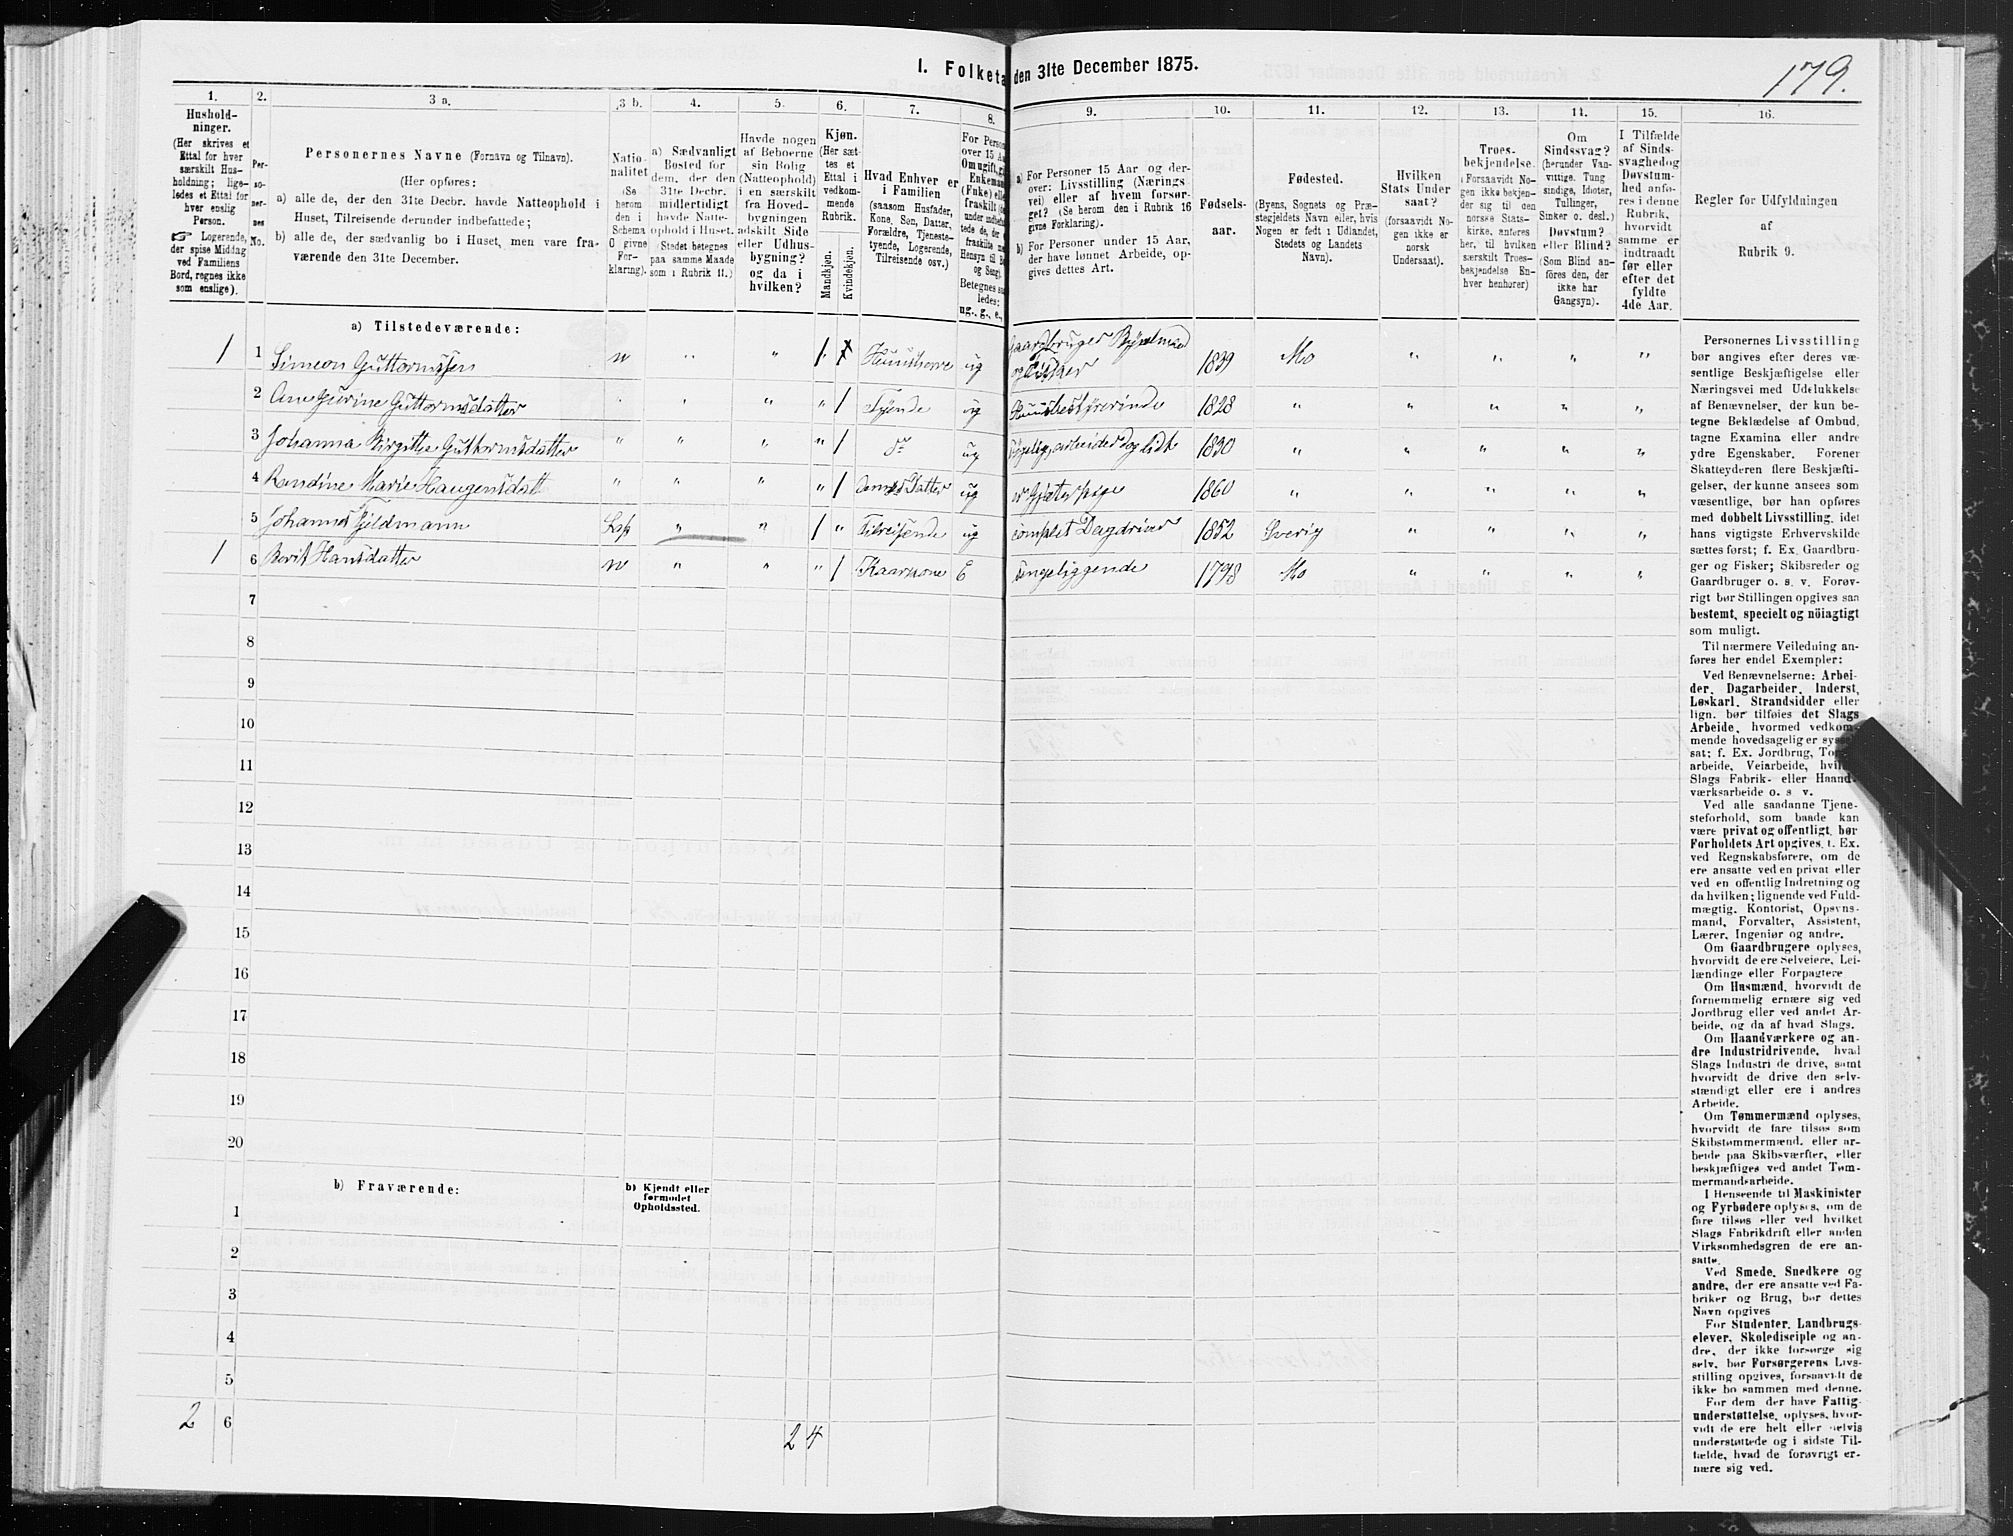 I. Folketa den 31te December 1875.
179.
1.
2.
3 a.
3 b.
4.
5.
6.
7.
8.
9.
10.
11.
12.
13.
14.
15.
16.
Hushold-
ninger.
(Her skrives et
Ettal for hver
særskilt Hus-
holdning; lige-
ledes et Ettal for
hver enslig
Person.
☞ Logerende,
der spise Middag
ved Familiens
Bord, regnes ikke
som enslige).
Per-
so-
ner-
nes
No.
Personernes Navne (Fornavn og Tilnavn).
(Her opføres:
a) alle de, der den 31te Decbr. havde Natteophold i
Huset, Tilreisende derunder indbefattede;
b) alle de, der sædvanlig bo i Huset, men vare fra-
værende den 31te December.
Natio-
nalitet
(Se
herom
den i
Schema
O givne
For-
klaring).
a) Sædvanligt
Bosted for
dem, der den
31te Decbr.
midlertidigt
havde Natte-
ophold i Huset.
(Stedet betegnes
paa samme Maade
som i Rubrik 11.)
Havde nogen
af Beboerne
sin Bolig
(Natteophold)
i en særskilt
fra Hoved-
bygningen
adskilt Side
eller Udhus-
bygning?
og da i
hvilken?
Kjøn.
(Her sæt-
tes et
Ettal i
vedkom-
mende
Rubrik.
Mandkjøn.
Kvindekjøn.
Hvad Enhver er
i Familien
(saasom Husfader,
Kone, Søn, Datter,
Forældre, Tjeneste-
tyende, Logerende,
Tilreisende osv.)
For Person
over 15 A
Omugift, g
Enkeman
(Enke) elle
fraskilt (s
under indbef
tede de, de
fraskilte m
Hensyn til B
og Seng).
Betegnes sa
ledes:
ug., g., e.,
a) For Personer 15 Aar og der-
over: Livsstilling (Nærings
vei) eller af hvem forsør-
get? (Se herom den i Rubrik 16
givne Forklaring).
b) For Personer under 15 Aar,
der have lønnet Arbeide, op-
gives dettes Art.
Fødsels-
aar.
Fødested.
(Byens, Sognets og Præ-
stegjeldets Navn eller, hvis
Nogen er født i Udlandet,
Stedets og Landets
Navn).
Hvilken
Stats Under
saat?
(forsaavidt No-
gen ikke er
norsk
Undersaat).
Troes-
bekjendelse.
(Forsaavidt No-
gen ikke bekjen-
der sig til den
norske Stats-
kirke, anføres
her, til hvilken
særskilt Troes-
bekjendelse En-
hver henhører)
Om
Sindssvag?
(herunder Van-
vittige, Tung
sindige, Idioter,
Tullinger,
Sinker o. desl.)
Døvstum?
eller Blind?
(Som Blind an-
føres den, der
ikke har
Gangsyn).
I Tilfælde
af Sinds-
svaghed og
Døvstum-
hed anfø-
res i denne
Rubrik,
hvorvidt
samme er
indtraadt
før eller
efter det
fyldte
4de Aar.
Regler før Udfyldningen
af
Rubrik 9.
a) Tilstedeværende:
1 1 Simeon Guttormsen n " " 1 " Huusherre ug Gaardbruger Bygselmand og Fisker 1839 Mo " " " "
2 Ane Gurine Guttormsdatter " " " " 1 Tyende ug Huusbestyrerinde 1828 " " " " "
3 Johanna Birgitte Guttormsdatter " " " " 1 d° ug arbeider og lidt 1830 " " " " "
4 Randine Marie Haugensdatt " " " " 1 Datter ug Gjeterpige 1860 " " " " "
5 Johannes Fjeldmann Lap " " 1 " Tilreisende ug complet Dagdriver 1852 Sverig " " " "
1 6 Berit Hansdatter n " " " 1 Kaarkone E sengeliggende 1798 Mo " " " "
7
8
9
10
11
12
13
14
15
16
17
18
19
20
b) Fraværende:
b) Kjendt eller
formodet
Opholdssted.
1
2
3
4
5
2 6
2 4
Personernes Livsstilling
bør angives efter deres væ-
sentlige Beskjæftigelse eller
Næringsvei med Udelukkelse
af Benævnelser, der kun be-
tegne Beklædelse af Ombud,
tagne Examina eller andre
ydre Egenskaber. Forener
Skatteyderen flere Beskjæfti-
gelser, der kunne ansees som
væsentlige, bør han opføres
med dobbelt Livsstilling, idet
hans vigtigste Erhvervskilde
sættes først; f. Ex. Gaardbru-
ger og Fisker; Skibsreder og
Gaardbruger o. s. v. Forøv-
rigt bør Stillingen opgives saa
bestemt, specielt og nöiagtigt
som muligt.
Til nærmere Veiledning an-
føres her endel Exempler:
Ved Benævnelserne: Arbei-
der, Dagarbeider, Inderst,
Løskarl, Strandsidder eller
lign. bør tilføies det Slags
Arbeide, hvormed vedkom-
mende hovedsagelig er syssel
sat; f. Ex. Jordbrug, Tom
arbeide, Veiarbeide, hvil
Slags Fabrik- eller Haand-
værksarbeide o. s v.
Ved alle saadanne Tjene-
steforhold, som baade kan
være privat og offentligt, bør
Forholdets Art opgives, f. Ex.
ved Regnskabsførere, om de
ere ansatte ved en privat eller
ved en offentlig Indretning og
da hvilken; lignende ved Fuld-
mægtig, Kontorist, Opsyns-
mand, Forvalter, Assistent,
Lærer, Ingeniør og andre.
Om Gaardbrugere oplyses,
hvorvidt de ere Selveiere, Lei-
lændinge eller Forpagtere
Om Husmænd, hvorvidt de
fornemmelig ernære sig ved
Jordbrug eller ved andet Ar-
beide, og da af hvad Slags.
Om Haandværkere og an-
dre Industridrivende, hvad
Slags Industri de drive, samt
hvorvidt de drive den selv-
stændigt eller ere i andres
Arbeide.
Om Tømmermænd oplyses,
hvorvidt de fare tilsøs som
Skibstømmermænd, eller ar-
beide paa Skibsværfter, eller
beskjæftiges ved andet Tøm-
mermandsarbeide.
I Henseende til Maskinister
og Fyrbødere oplyses, om de
fare tilsøs eller ved hvilket
Slags Fabrikdrift eller anden
Virksomhedsgren de ere an-
satte.
Ved Smede, Snedkere og
andre, der ere ansatte ved Fa-
briker og Brug, bør dettes
Navn opgives
For Studenter, Landbrugs-
elever, Skoledisciple og an-
dre, der ikke forsørge sig
selv, bør Forsørgerens Livs-
stilling opgives, forsaavidt de
ikke bo sammen med denne.
For dem der have Fattig-
understøttelse, oplyses, hvor-
vidt de ere helt eller delvis
understøttede og i sidste Til-
fælde, hvad de forøvrigt er-
nære sig ved.